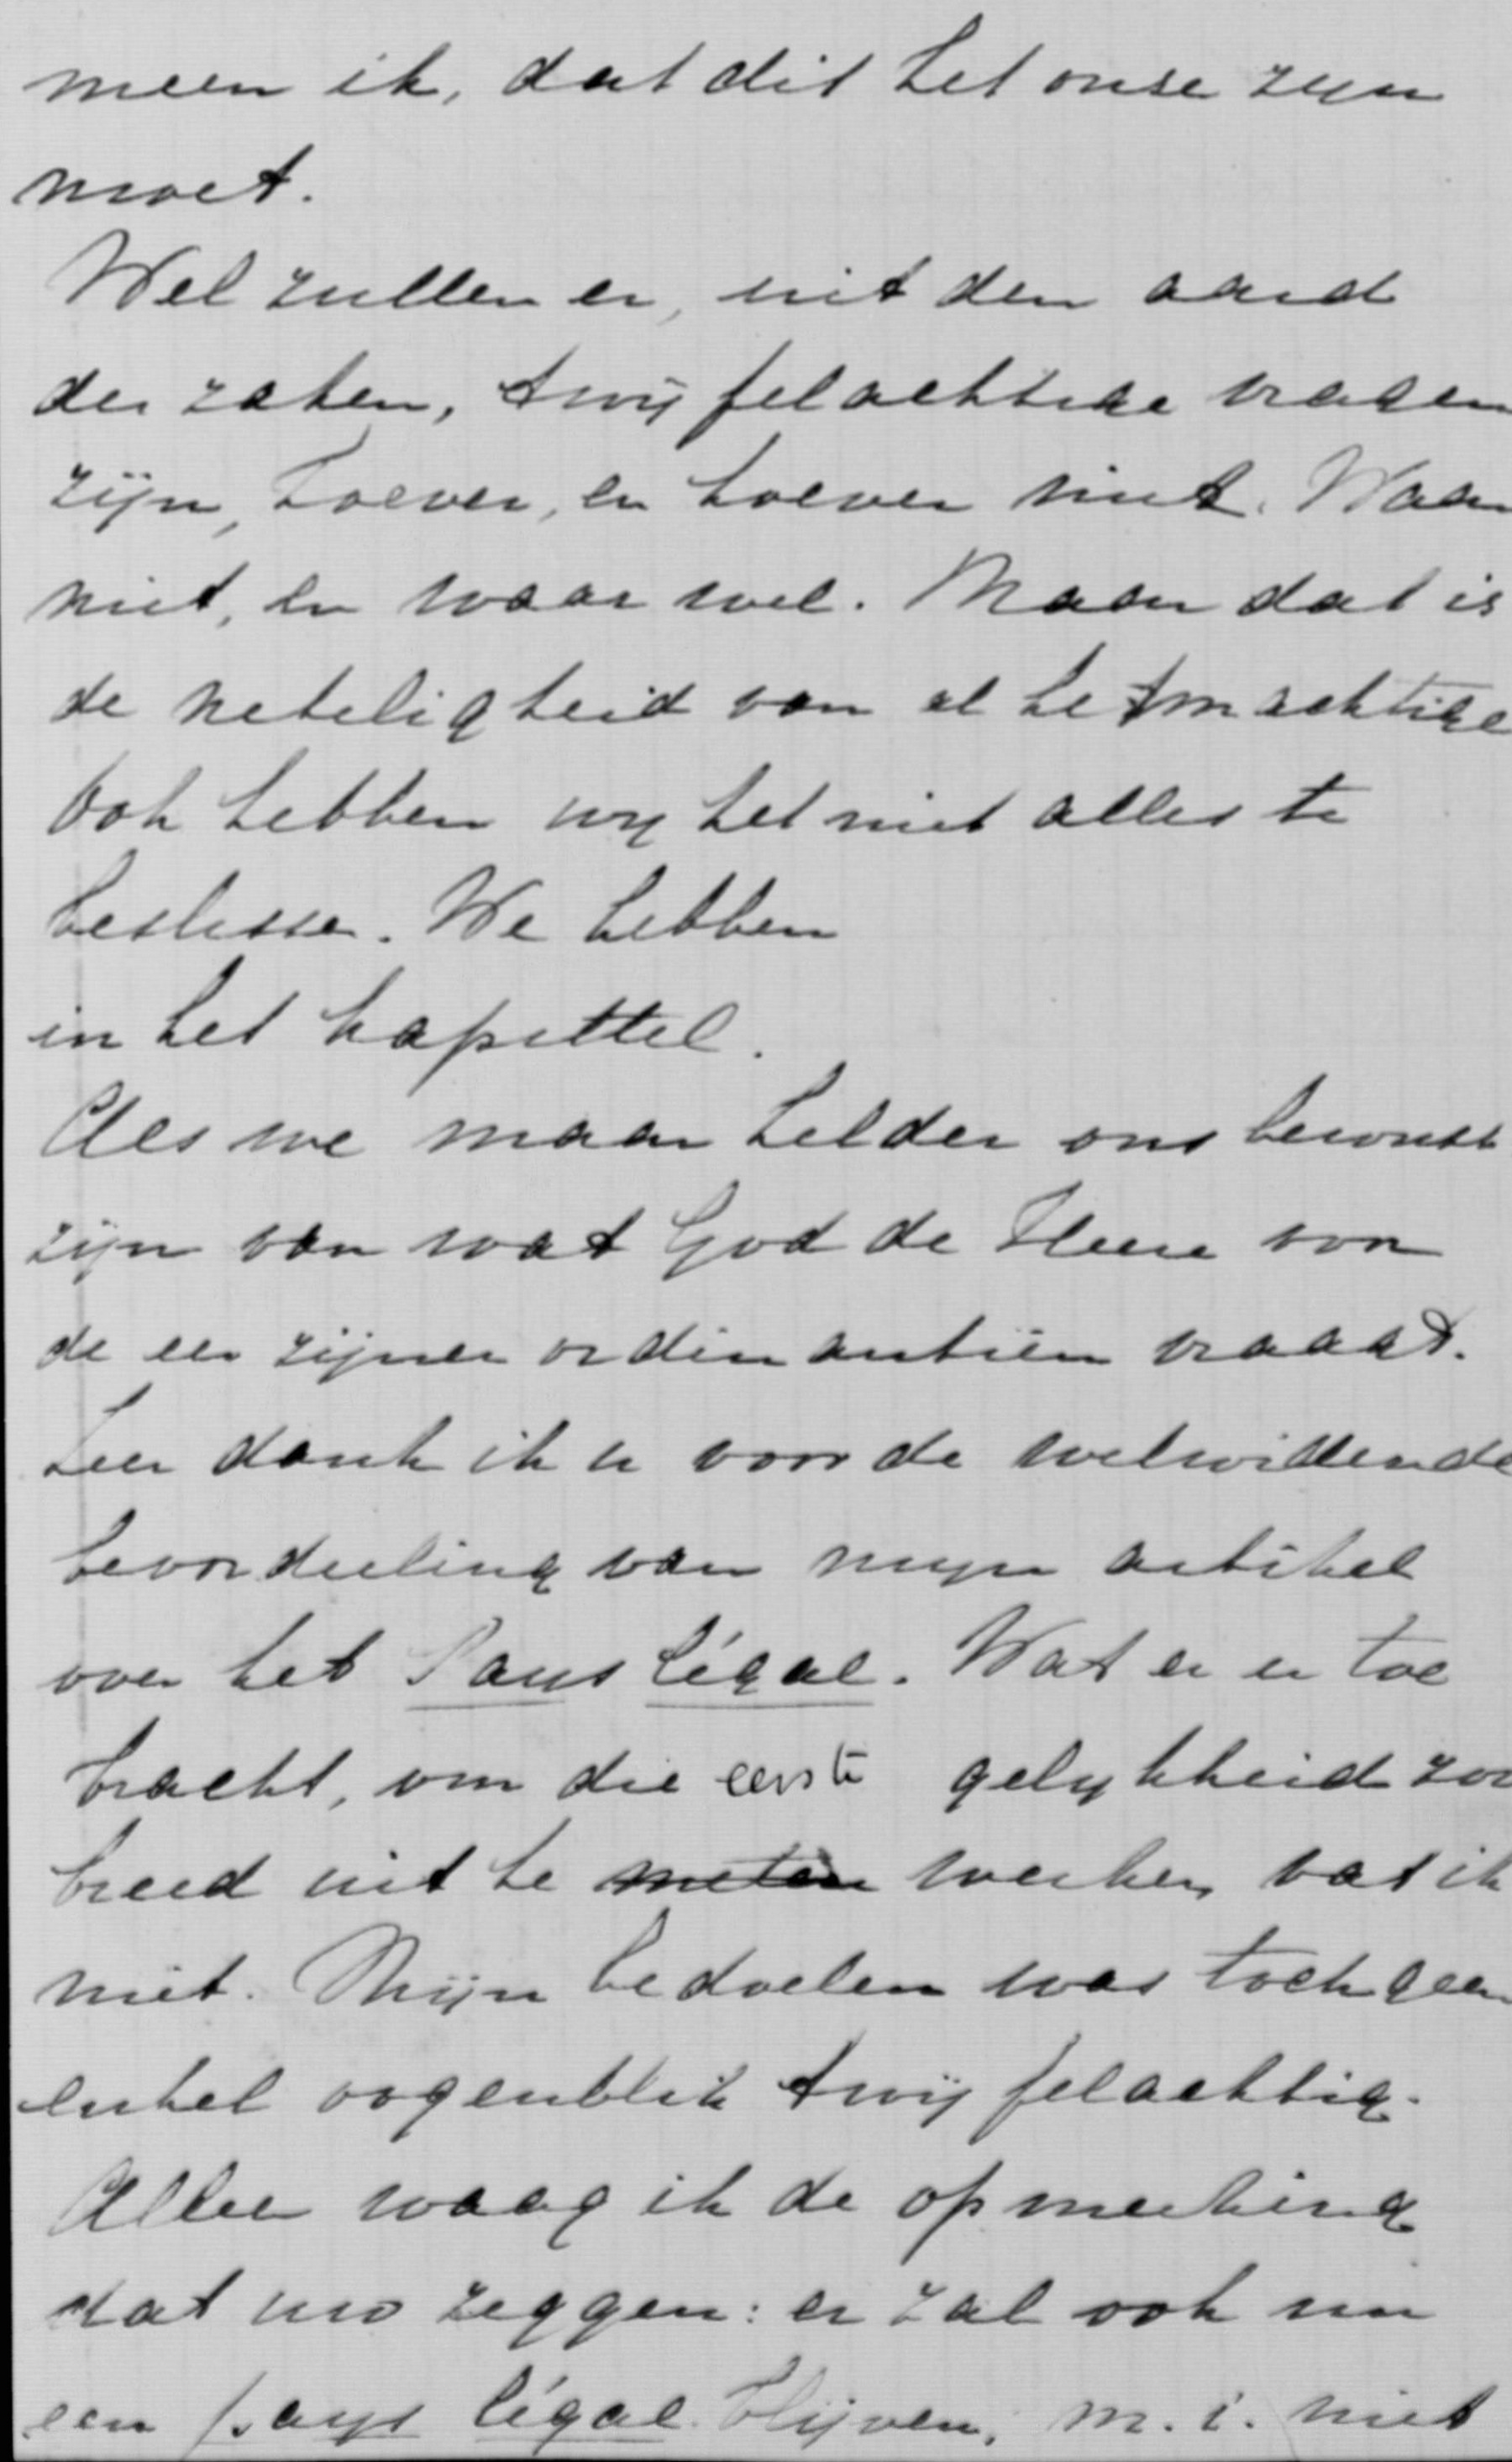 meen ik, dat dit het onze zijn
moet.
Wel zullen er, uit den aard
der zaken, twijfelachtige vragen
zijn, hoever, en hoever niet. Waar
niet, en waar wel. Maar dat is
de neteligheid van al het machtige
Ook hebben wij het niet alles te
beslissen. We hebben
in het kapittel.
Als we maar helder ons bewust
zijn van wat God de Heere voor
de eer zijner ordinantiën vraagt.
Zeer dank ik u voor de welwillende
beoordeeling van mijn artikel
over het Pays légal. Wat er er toe
bracht, om die eerste gelijkheid zoo
breed uit te meten werken vat ik
niet. Mijn bedoelen was toch geen
enkel oogenblik twijfelachtig.
Alleen waag ik de opmerking
dat uw zeggen: er zal ook nu
een pays légal blijven, m. i. niet